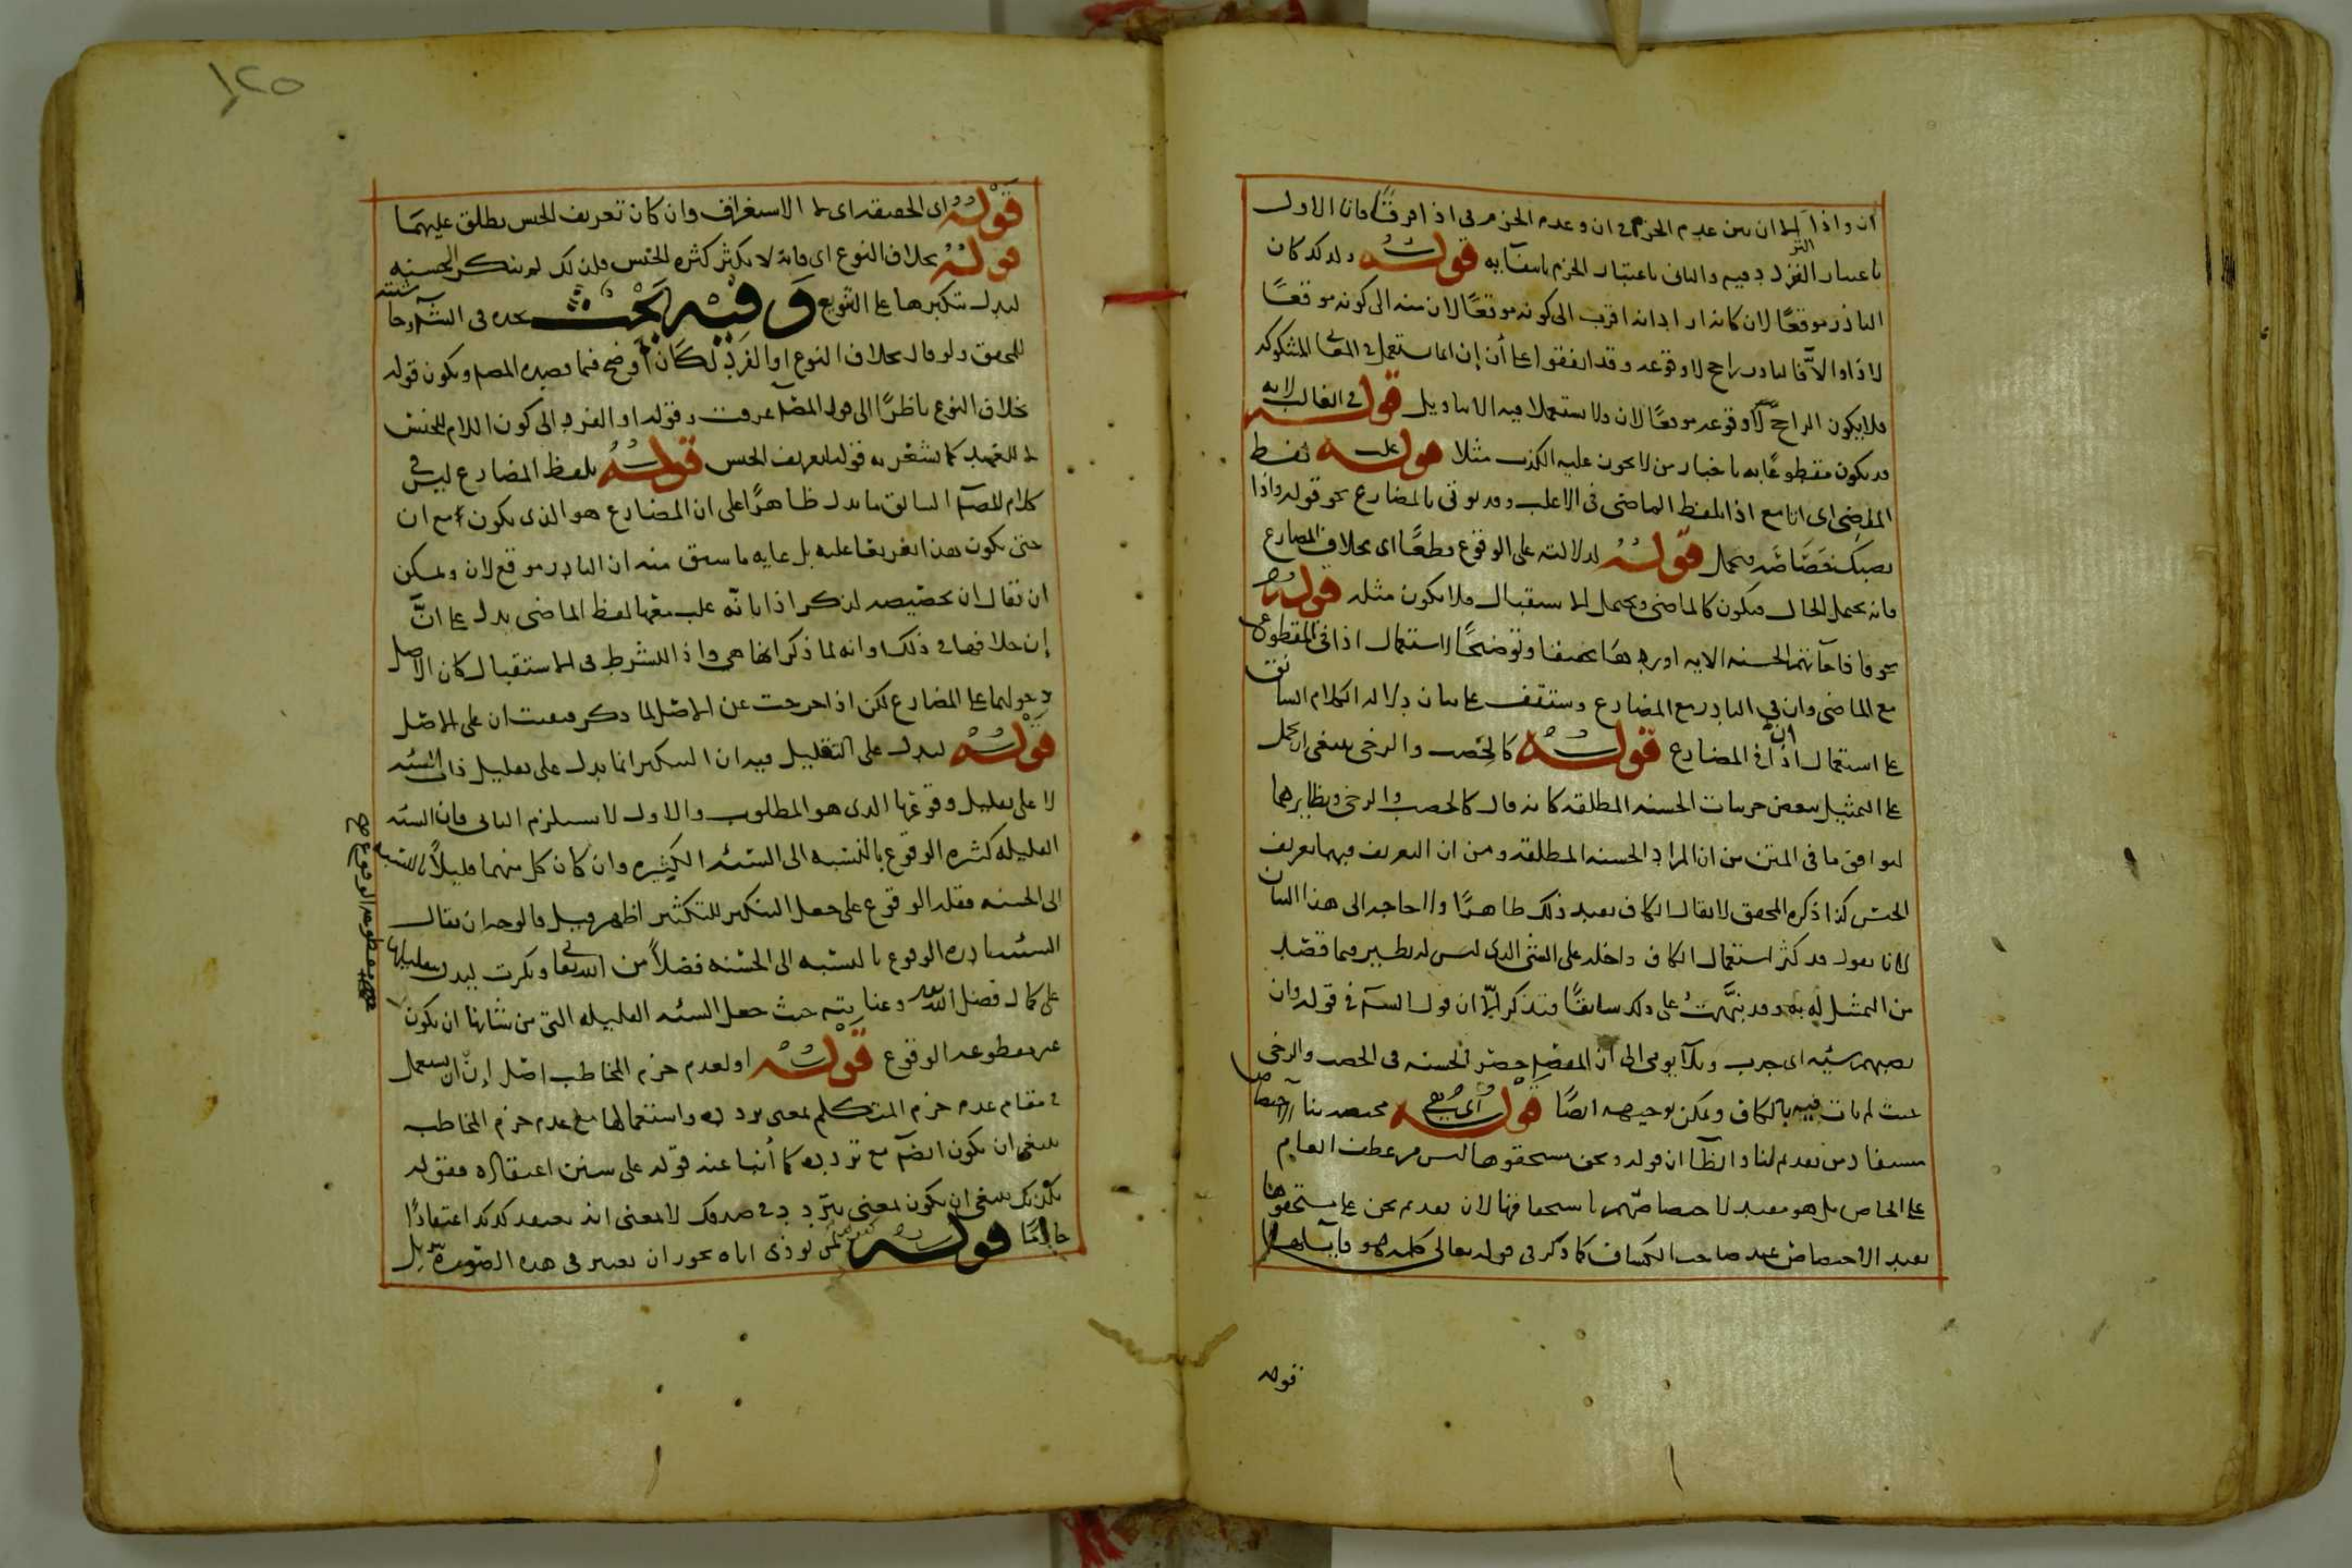 ان واذا لما ان بين عدم الجزم في ان وعدم الجزم في اذا فرقا فانا الاول
باعتبار التردد فيه والثاني باعتبار الجزم بانتفائه قوله ولذلك كان
النادر موقعا لان كانه ارادانه اقرب الى كونه موقعا لان منه الى كونه موقعا
لاذا والا فالنادر راجح لا وقوعه وقد اتفقوا على أن إن انما يستعمل في المعاني المشكوكه
فلا يكون الراجح لا وقوعه موقعا لان ولا يستعملا فيه الا بتاويل قوله في الغالب لانه
قد يكون مقطوعا به باخبار من لا يجوز عليه الكذب مثلا قوله غلب لفظ
الماضي اي انا مع اذا بلفظ الماضي في الاغلب وقد يوتى بالمضارع نحو قوله واذا
تصبك خصاصة فتجمل قوله لدلالته على الوقوع قطعا اى بخلاف المضارع
فانه يحتمل الحال فيكون كالماضي ويحتمل الاستقبال فلا يكون مثله قوله
نحو فاذا جاءتهم الحسنه الايه اوردها تحقيقا وتوضيحا لاستعمال اذا في المقطوع
مع الماضي وان في النادر مع المضارع وستقف على بيان دلاله الكلام السابق
على استعمال ان في المضارع قوله كالخصب والرخي ينبغي ان يحمل
على التمثيل ببعض جزئيات الحسنه المطلقه كانه قال كالخصب والرخي ونظايرهما
ليوافق ما في المتن من ان المراد الحسنه المطلقه ومن ان التعريف فيها تعريف
الجنس كذا ذكره المحقق لا يقال الكاف يفيد ذلك ظاهرا ولا حاجه الى هذا البيان
لانا نقول قد كثر استعمال الكاف داخله على الشي الذي ليس له نظير فيما قصد
من التمثيل له به وقد نبهت على ذلك سابقا فتذكر ان قول في قوله وان
تصبهم سيئه اى جدب وبلا يومي الى ان المفصل حصر الحسنه في الخصب والرخي
حيث لم يات فيه بالكاف ويمكن توجيهه ايضا قوله اى مختصه بنا الاختصاص
مستفاد من تقديم لنا وايضا ان قوله ونحن مستحقوها ليس من عطف العام
على الخاص بل هو مفيد لاختصاصهم باستحقاقها لان تقديم نحن على مستحقوها
يفيد الاختصاص عند صاحب الكشاف كما ذكر في قوله تعالى كلمة هو قائلها
قوله
١٢٥
قوله اى الحقيقه اى لا الاستغراق وان كان تعريف الجنس يطلق عليهما
قوله بخلاف النوع اى فانه لا يكثر كثره الجنس فلذلك لم ينكر الحسنه
ليدل تنكيرها على التنويع وفيه بحث
للمحقق ولو قال بخلاف النوع او الفرد لكان اوضح فيما قصده المصم ويكون قوله
بخلاف النوع ناظرا الى قول المصم عرفت وقوله او الفرد الى كون اللام للجنس
لا للعهد كما يشعر به قوله تعريف الجنس قوله بلفظ المضارع ليس في
كلام المصم السابق ما يدل ظاهرا على ان المضارع هو الذي يكون مع ان
حتى يكون هذا تفريعا عليه بل غايه ما سبق منه ان النادر موقع لان ويمكن
ان يقال ان تخصيصه لذكر اذا بانه غلب معها لفظ الماضي يدل على ان
إن خلافها في ذلك وانه لما ذكر انها هي واذا للشرط في الاستقبال كان الاصل
دخولهما على المضارع لكن اذا خرجت عن الاصل لما ذكر فبقيت ان على الاصل
قوله ليدل على التقليل فيه ان التنكير انما يدل على تقليل ذات السئه
لا على تقليل وقوعها الذي هو المطلوب والاول لا يستلزم الثاني فان السئه
القليله كثيره الوقوع بالنسبه الى السئه الكثيره وان كان كل منهما قليلا بالنسبه
الى الحسنه فقله الوقوع على جعل التنكير للتكثير اظهر قيل فالوجه ان يقال
السئه نادره الوقوع بالنسبه الى الحسنه فضلا من الله تعالى ونكرت ليدل بتقليلها
على كمال فضل الله وعنايته حيث جعل السئه القليله التي من شانها ان يكون
غير مقطوعه الوقوع قوله او لعدم جزم المخاطب اصل ان ان يستعمل
في مقام عدم جزم المتكلم بمعنى تردده واستعمالها مع عدم جزم المخاطب
ينبغي ان يكون ايضا مع تردده كما أنها عند قوله على سنن اعتقاده فقوله
يكذبك ينبغي ان يكون بمعنى يتردد في صدقك لا بمعنى انه يعتقد كذبك اعتقادا
جازما قوله لمن يوذي اباه يجوز ان يعتبر في هذه الصورة تنزيل